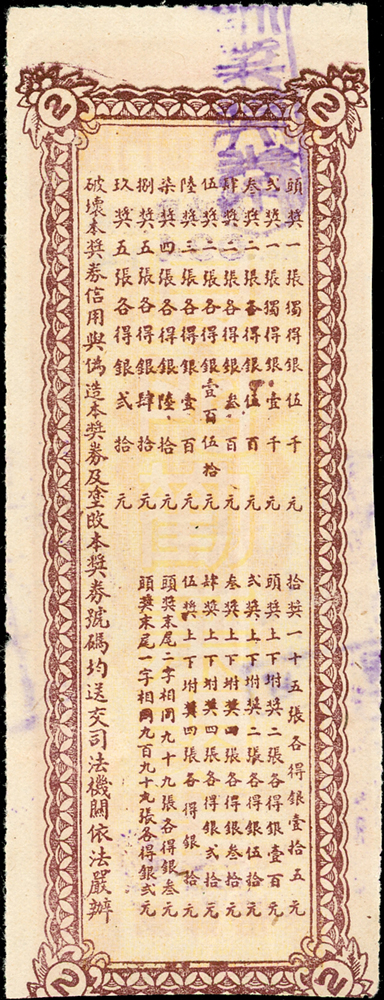 頭獎一張獨得銀伍千元
弍獎一張獨得銀壹千元
叁獎二張各得銀伍百元
肆獎二張各得銀叁百元
伍獎二張各得銀壹百伍拾元
陸獎三張各得銀壹百元
柒獎四張各得銀陸拾元
捌獎五張各得銀肆拾元
玖獎五張各得銀弍拾元
拾獎一十五張各得銀壹拾五元
頭獎上下坿獎二張各得銀壹百元
弍獎上下坿獎二張各得銀伍拾元
叁獎上下坿獎四張各得銀叁拾元
肆獎上下坿獎四張各得銀弍拾元
伍獎上下坿獎四張各得銀拾元
頭獎末尾二字相同九十九張各得銀叁元
頭獎末尾一字相同九百九十九張各得銀弍元
破壞本獎券信用與偽造本獎券及塗改本獎券號碼均送交司法機關依法嚴辦
2
2
2
2